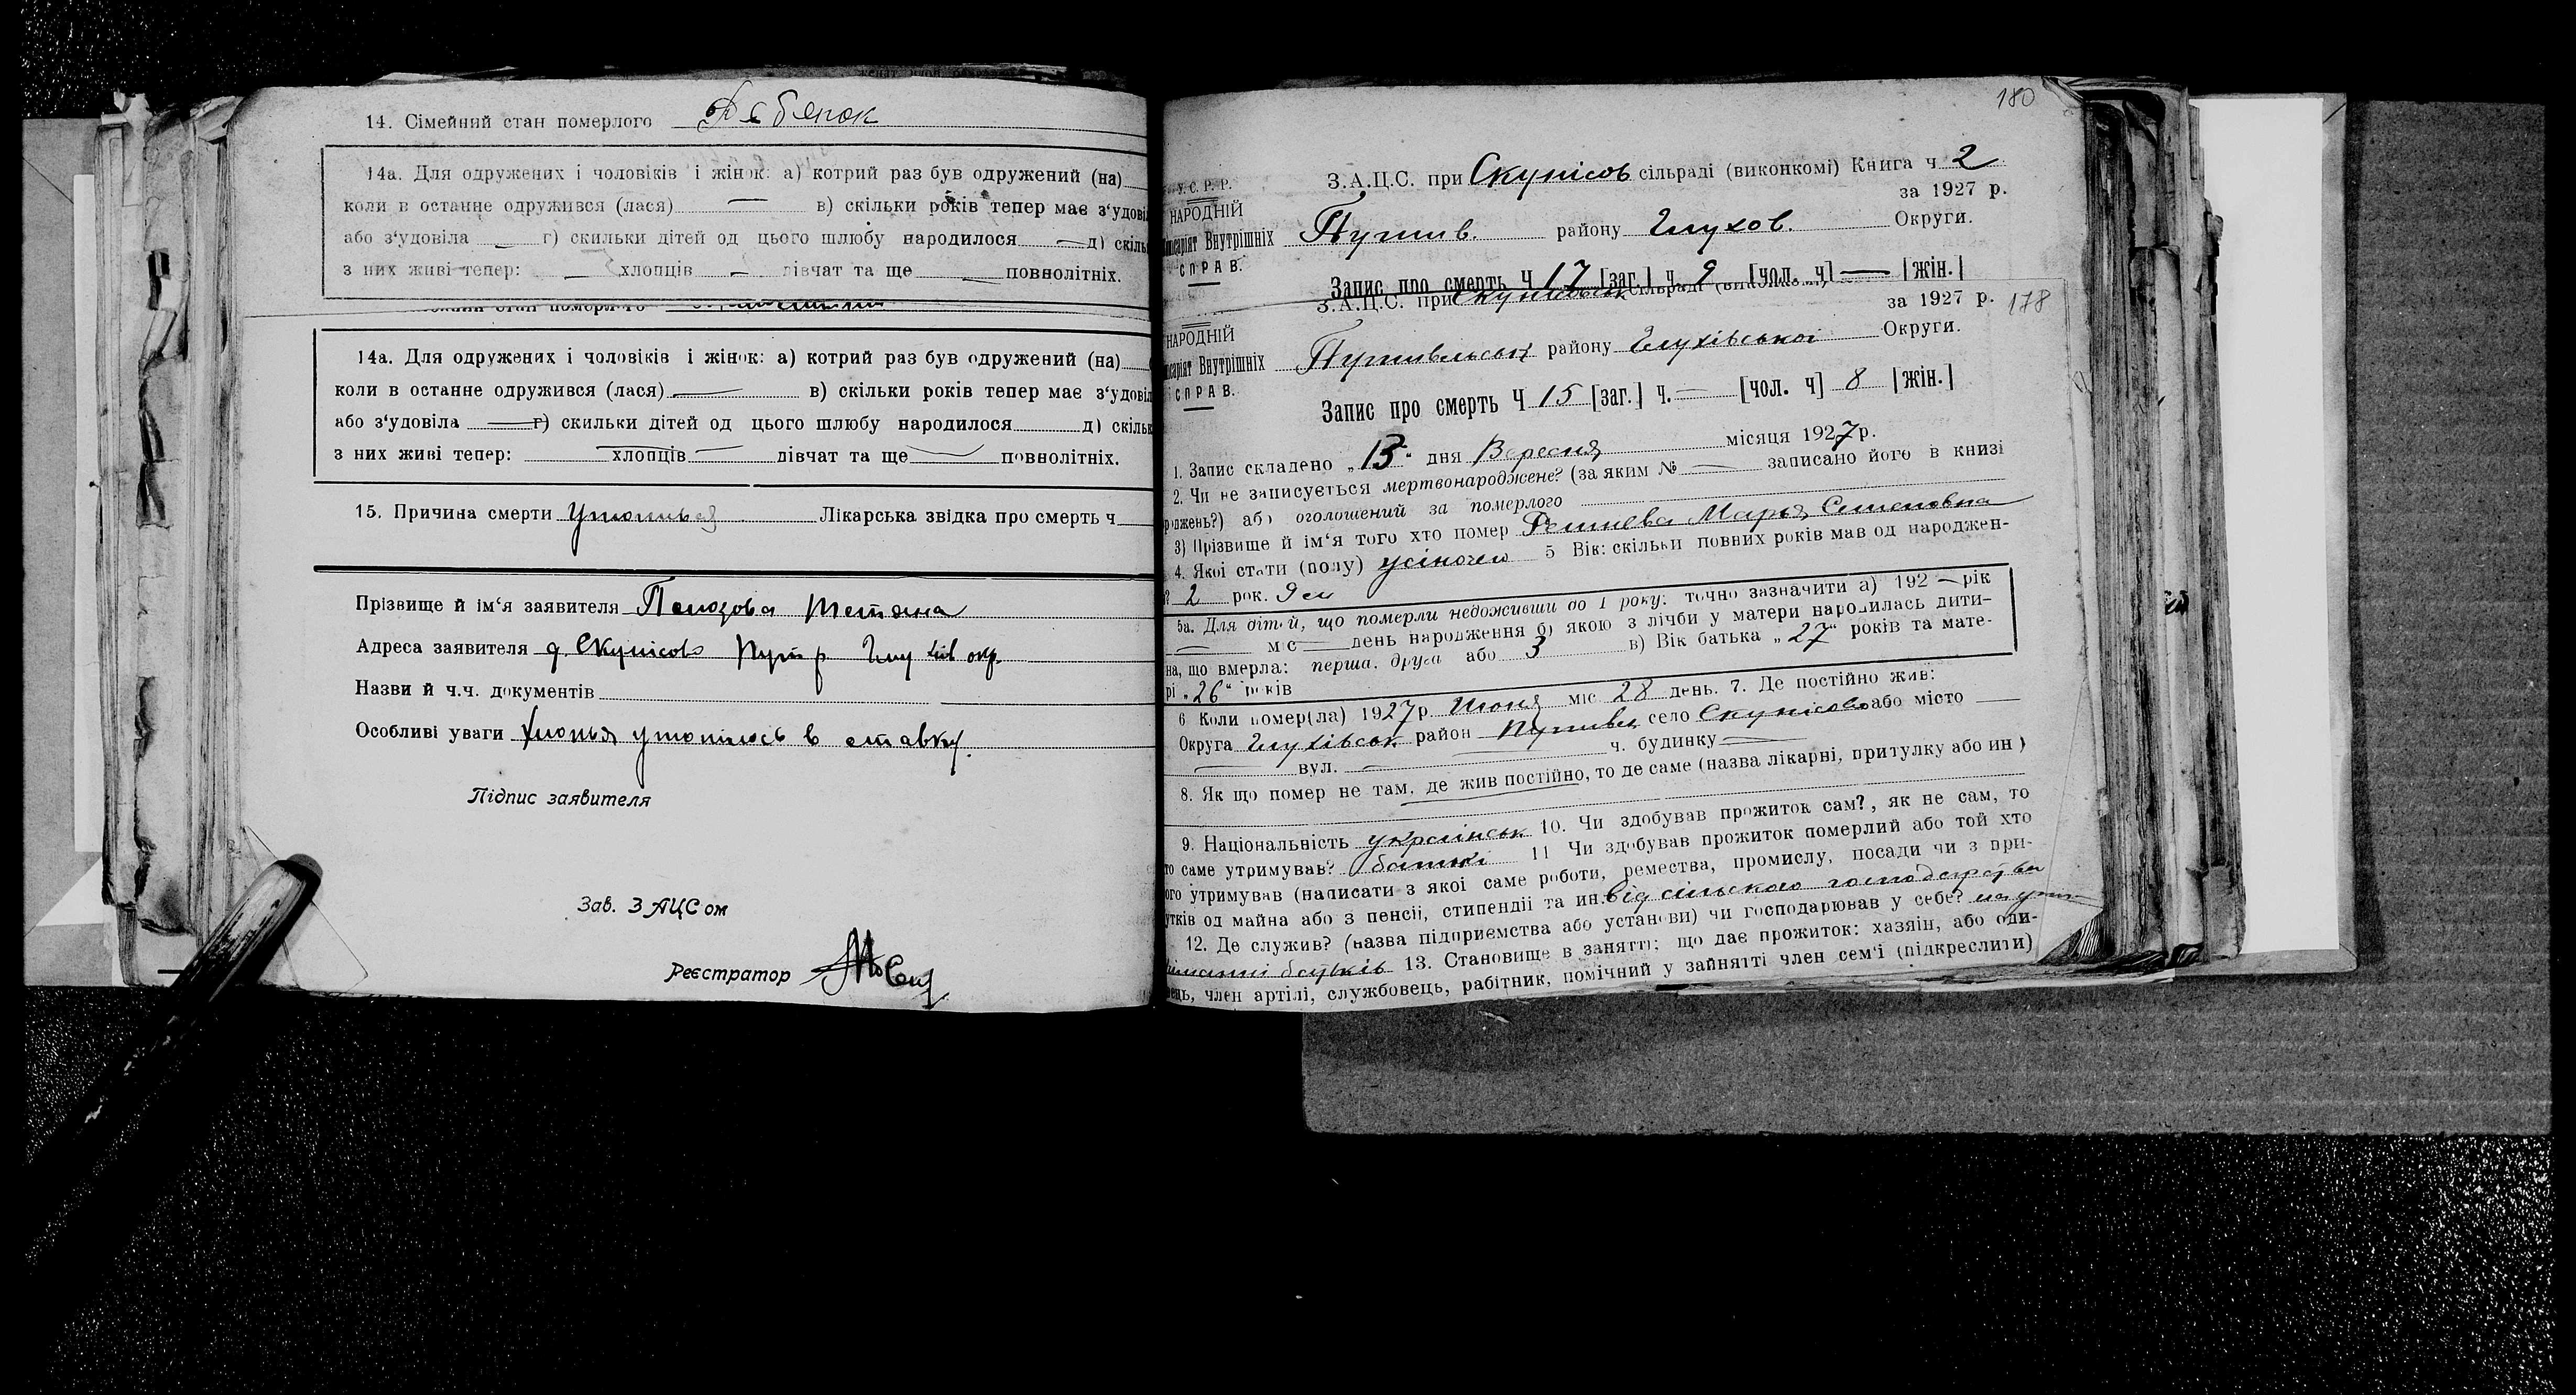 14. Сімейний стан померлого Рєбенок
14а. Для одружених і чоловіків і жінок: а) котрий раз був одружений (на)
коли в останне одружився (лася) — в) скільки років тепер має з‘удові
або з‘удовіла — г) скильки дітей од цього шлюбу народилося — д) скіль
з них живі тепер: — хлопців — дівчат та ще — повнолітніх.
14а. Для одружених і чоловіків і жінок: а) котрий раз був одружений (на)
коли в останне одружився (лася) — в) скільки років тепер має з‘удовіл
або з‘удовіла — г) скильки дітей од цього шлюбу народилося д) скільк
з них живі тепер: хлопців — дівчат та ще — повнолітніх.
15. Причина смерти Утопивься Лікарська звідка про смерть ч
Прізвище й ім‘я заявителя Тетяна
Адреса заявителя с. Скунісов Пут р Глухів окр.
Назви й ч.ч. документів
Особливі уваги утопилось в ставку.
Підпис заявителя
Зав. ЗАЦСом
Реєстратор
180
З.А.Ц.С. при Скунісов сільраді (виконкомі) Книга ч 2
У.С.Р.Р.
за 1927 р.
НАРОДНІЙ
Путив. району Глухов. Округи.
Внутрішніх
СПРАВ.
Запис про смерть Ч 17 [заг.] ч. 9 [чол. ч] — [жін.]
З.А.Ц.С. при сільраді
за 1927 р. 178
НАРОДНІЙ
Путивльськ району Глухівської Округи.
Внутрішніх
СПРАВ.
Запис про смерть Ч 15 [заг.] ч. — [чол. ч] 8 [жін.]
1. Запис складено „13“ дня Вересня місяця 1927 р.
2. Чи не записується мертвонароджене? (за яким № — записано його в книзі
роджень?) або оголошений за померлого
3) Прізвище й ім‘я того хто помер Марья Семеновна
4. Якої стати (полу) жіночего 5 Вік: скільки повних років мав од народжен-
2 рок. 9 м
5а. Для дітей, що померли недоживши до 1 року: точно зазначити а) 192 — рік
— міс — день народження б) якою з лічби у матери народилась дити-
на, що вмерла: перша, друга або 3 в) Вік батька „27“ років та мате-
рі „26“ років
6 Коли помер(ла) 1927 р. Июня міс 28 день. 7. Де постійно жив:
Округа Глухівськ район Путивл село Скунісово або місто —
— вул. — ч. будинку —
8. Як що помер не там, де жив постійно, то де саме (назва лікарні, притулку або ин)
9. Національність українськ 10. Чи здобував прожиток сам?, як не сам, то
то саме утримував? батькі 11 Чи здобував прожиток померлий або той хто
ого утримував (написати з якої саме роботи, ремества, промислу, посади чи з при-
утків од майна або з пенсії, стипендії та ин. Від сільского господарства
12. Де служив? (назва підприємства або установи) чи господарював у себе? на утри
манні батьків 13. Становище в занятті: що дає прожиток: хазяїн, або оди-
нець, член артілі, службовець, рабітник, помічний у зайнятті член сем‘ї (підкреслити)